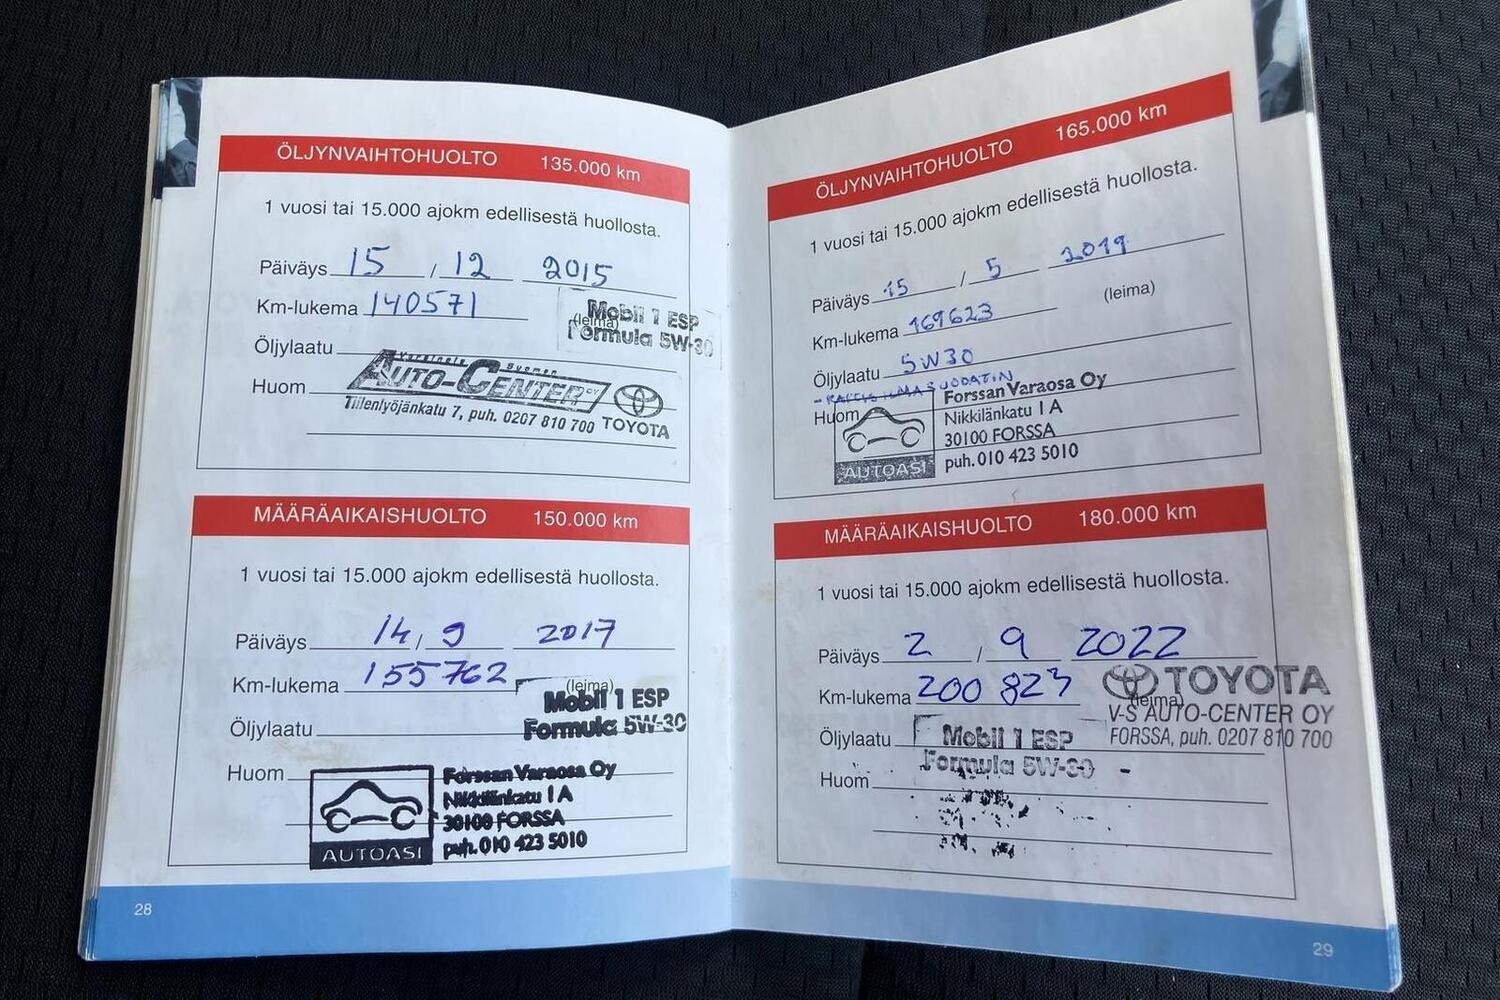 ÖLJYNVAIHTOHUOLTO 135.000 km
1 vuosi tai 15.000 ajokm edellisestä huollosta.
Päiväys 15 / 12 2015
Km-lukema 140571
(leima)
Mobil 1 ESP
Formula 5W-30
Öljylaatu
Huom
Varsinais Suomen
AUTO-CENTER OY
Tiilenlyöjänkatu 7, puh. 0207 810 700 TOYOTA
MÄÄRÄAIKAISHUOLTO 150.000 km
1 vuosi tai 15.000 ajokm edellisestä huollosta.
Päiväys 14 / 9 2017
Km-lukema 155762
(leima)
Mobil 1 ESP
Formula 5W-30
Öljylaatu
Huom
AUTOASI
Forssan Varaosa Oy
Nikkilänkatu 1 A
30100 FORSSA
puh. 010 423 5010
28
ÖLJYNVAIHTOHUOLTO 165.000 km
1 vuosi tai 15.000 ajokm edellisestä huollosta.
Päiväys 15 / 5 2019
Km-lukema 169623
(leima)
Öljylaatu 5W30
- RAITIS ILMASUODATIN
Huom
AUTOASI
Forssan Varaosa Oy
Nikkilänkatu 1 A
30100 FORSSA
puh. 010 423 5010
MÄÄRÄAIKAISHUOLTO 180.000 km
1 vuosi tai 15.000 ajokm edellisestä huollosta.
Päiväys 2 / 9 2022
Km-lukema 200 823
(leima)
TOYOTA
V-S AUTO-CENTER OY
FORSSA, puh. 0207 810 700
Öljylaatu
Mobil 1 ESP
Formula 5W-30
Huom
29